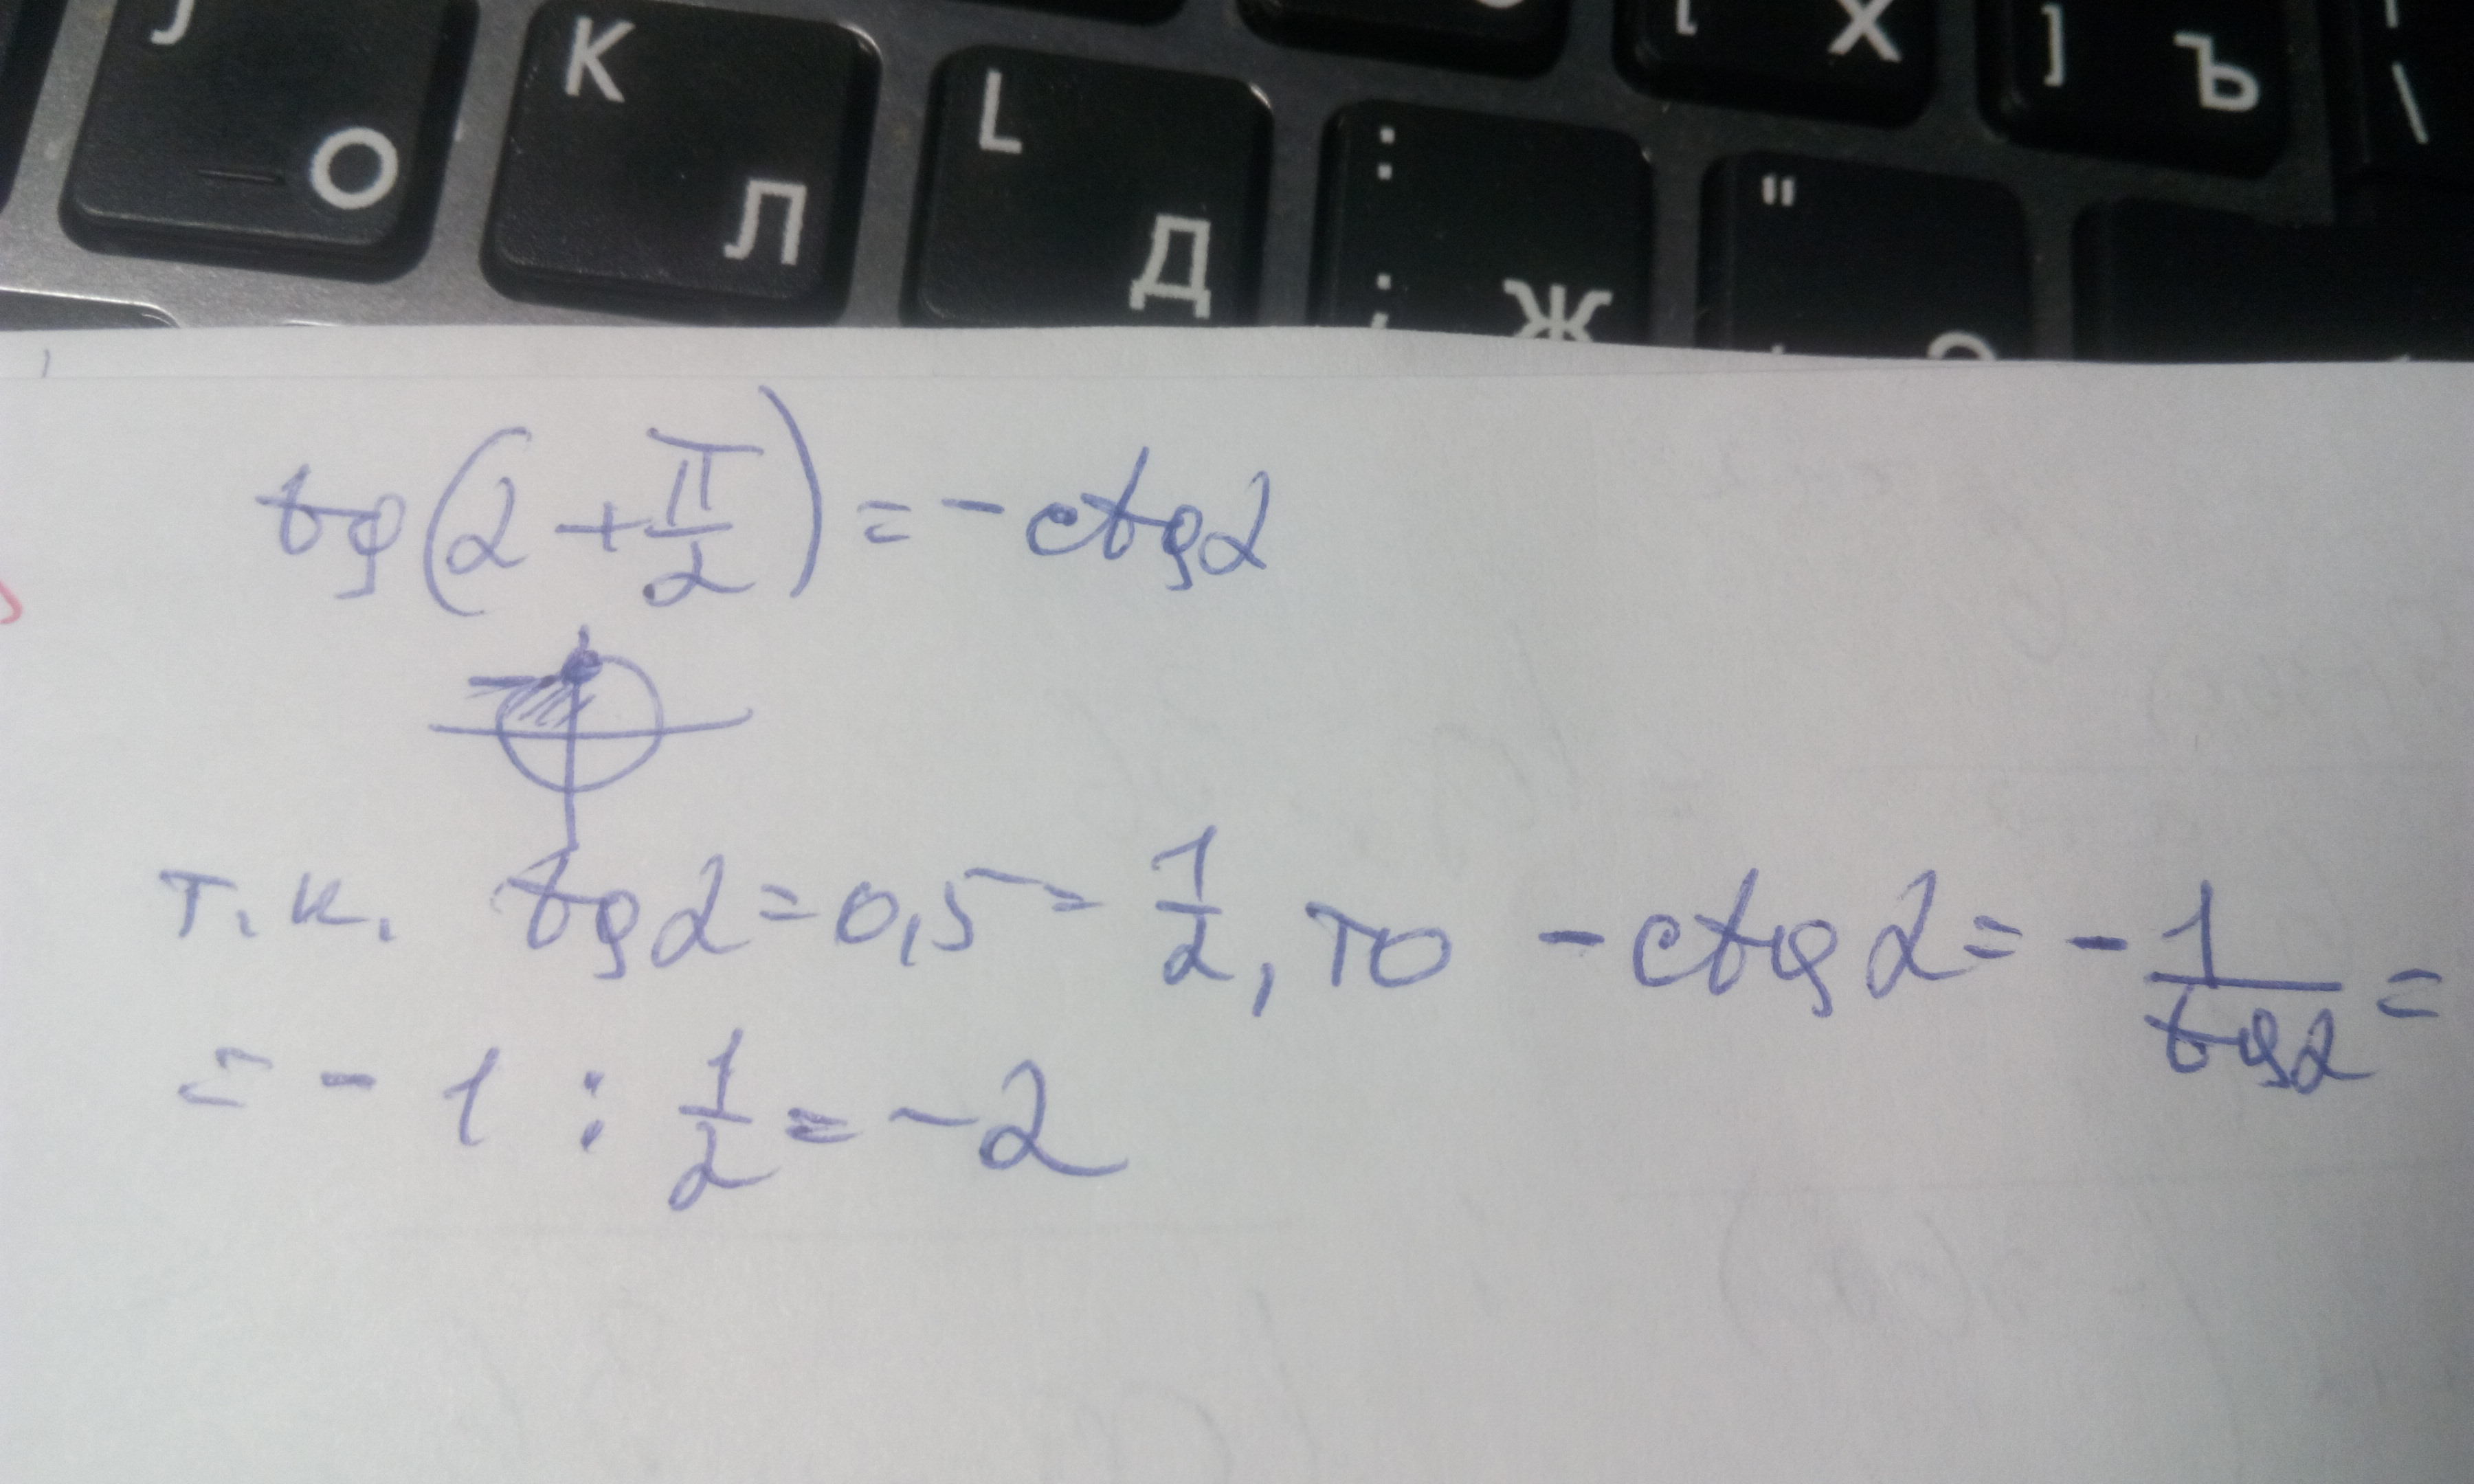 J О K Л L Д : ; Ж " [ Х ] Ъ \
tg(α + π/2) = - ctgα
т.к. tgα = 0,5 = 1/2, то - ctgα = - 1/tgα =
= - 1 : 1/2 = - 2